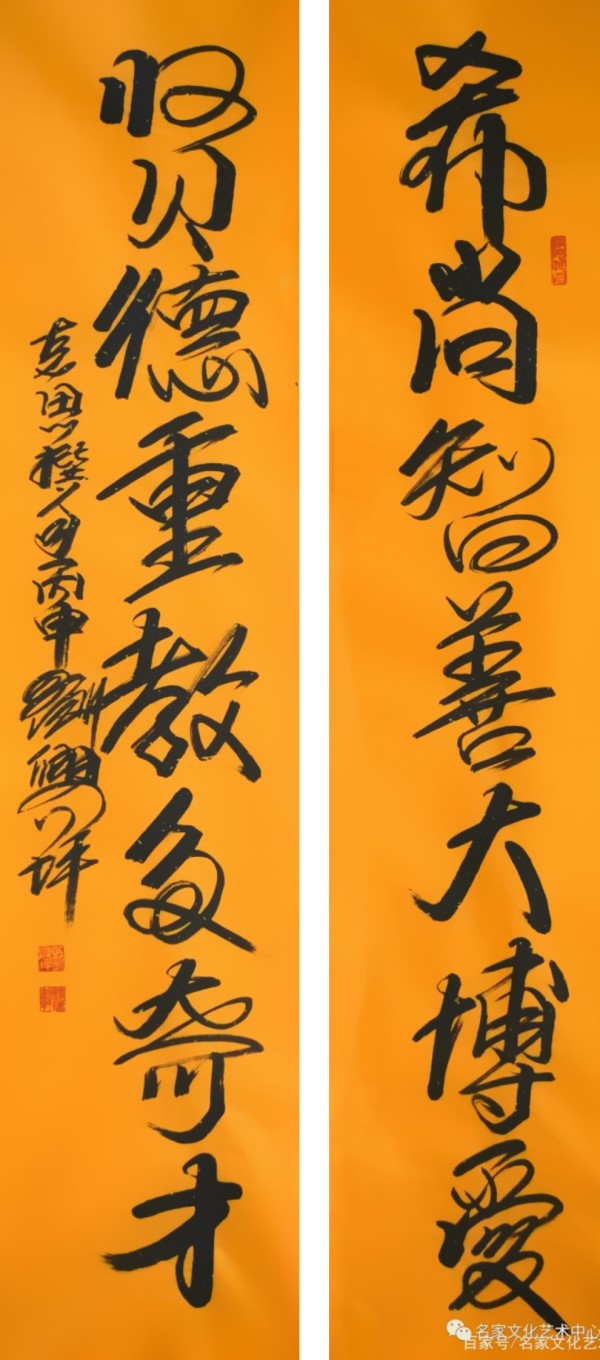 希尚智善大博愛
贤德重教多奇才
丙申
名家文化艺术中心
百家号/名家文化艺